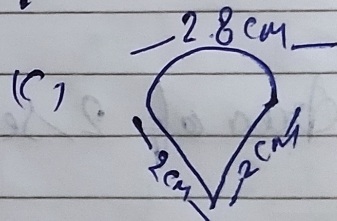 2.8 cm
(C)
2cm
2cm